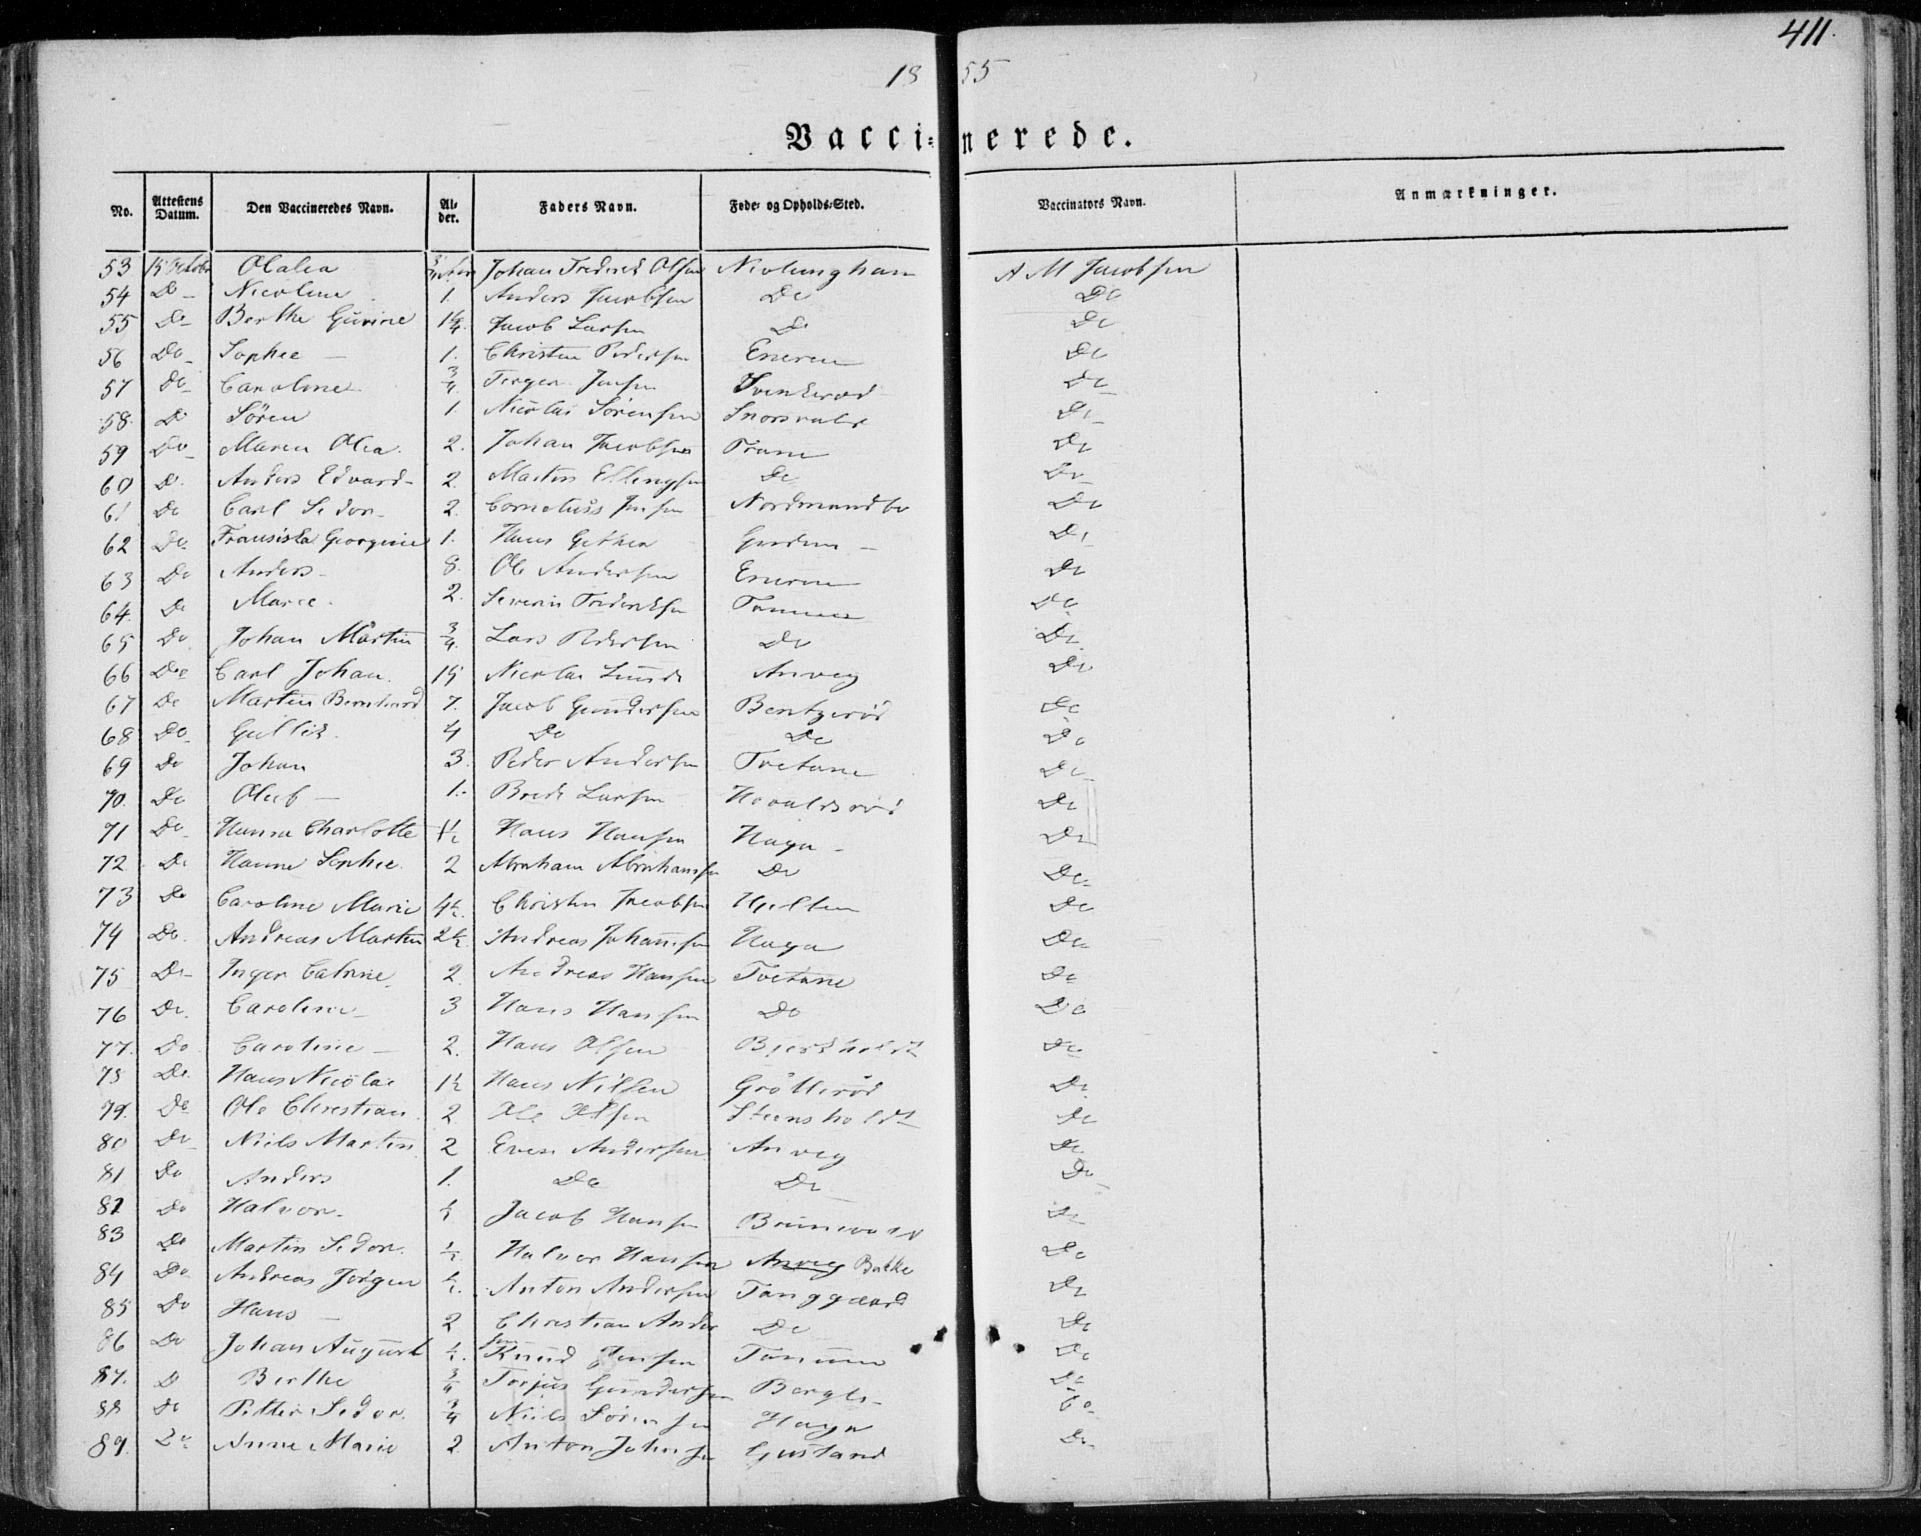 411.
18 55
Vacci-nerede.
No. Attestens Datum. Den Vaccineredes Navn. Alder. Faders Navn. Føde- og Opholds-Sted. Vaccinators Navn. Anmærkninger.
53 15 October Olalia Johan Frederek Olsen Nevlungham A M Jacobsen
54 Do Nicoline 1. Anders Jacobsen Do Do
55 Do Berthe Gurine Jacob Larsen Do Do
56 Do Sophie 1. Christen Pedersen Eneren Do
57 Do Caroline 3/4 Jørgen Jensen Do
58. Do Sören 1 Nicolai Sörensen Do
59 Do Maren Olea. 2. Johan Jacobsen Do
60 Do Anders Edvard 2. Martin Ellingsen Do Do
61 Do Carl Sedor 2. Cornelius Jensen Nordmandbo Do
62 Do Fransiska Georgine 1. Hans Do
63 Do Anders 8. Ole Andersen Eneren Do
64. Do Marie. 2. Severin Frederiksen Do
65 Do Johan Martin 3/4. Lars Pedersen Do Do
66 Do Carl Johan. 15 Nicolai Lunde Anveg Do
67 Do Martin Bernhard 7. Jacob Gundersen Bentzeröd Do
68 Do Gullik. 4 Do Do Do
69 Do Johan 3. Peder Andersen Tvetane Do
70. Do Oluf 1. Brede Larsen Havaldsröd Do
71 Do Hanna Charlotte 1 1/2 Hans Hansen Haga Do
72 Do Hanne Sophie. 2 Abraham Abrahamsen Do Do
73 Do Caroline Marie 4 1/2. Christen Jacobsen Do
74 Do. Andreas Martin 2 1/2. Andreas Johannsen Haga Do
75 Do Inger Catrine. 2. Andreas Hansen Tvetane Do
76 Do. Caroline 3 Hans Hansen Do Do
77. Do Caroline 2. Hans Olsen Bjerkholdt Do
78 Do. Hans Nicolai 1 1/2 Hans Nilsen Do
79. Do Ole Christian. 2 Ole Olsen Steensholdt Do
80 Do Niels Martin 2 Even Andersen. Anveg Do
81 Do Anders 1. Do Do Do
82 Do Halvor. 1/2 Jacob Hansen Do
83 Do Martin Sedor. 1/2 Halvor Hansen Anveg Bakke Do
84 Do Andreas Jörgen 1/2. Anton Andersen Tanggaard Do
85 Do Hans 2 Christian Ander Do Do
86 Do Johan August 1/2. sen Knud Jensen Tanum Do
87. Do Berthe 3/4 Torjus Gundersen Do
88 Do Petter Sedor. 3/4 Niels Sörensen Haga Do
89. Do Anne Marie 2 Anton Johnsen Do